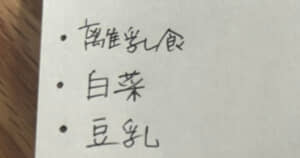 ・離乳食
・白菜
・豆乳